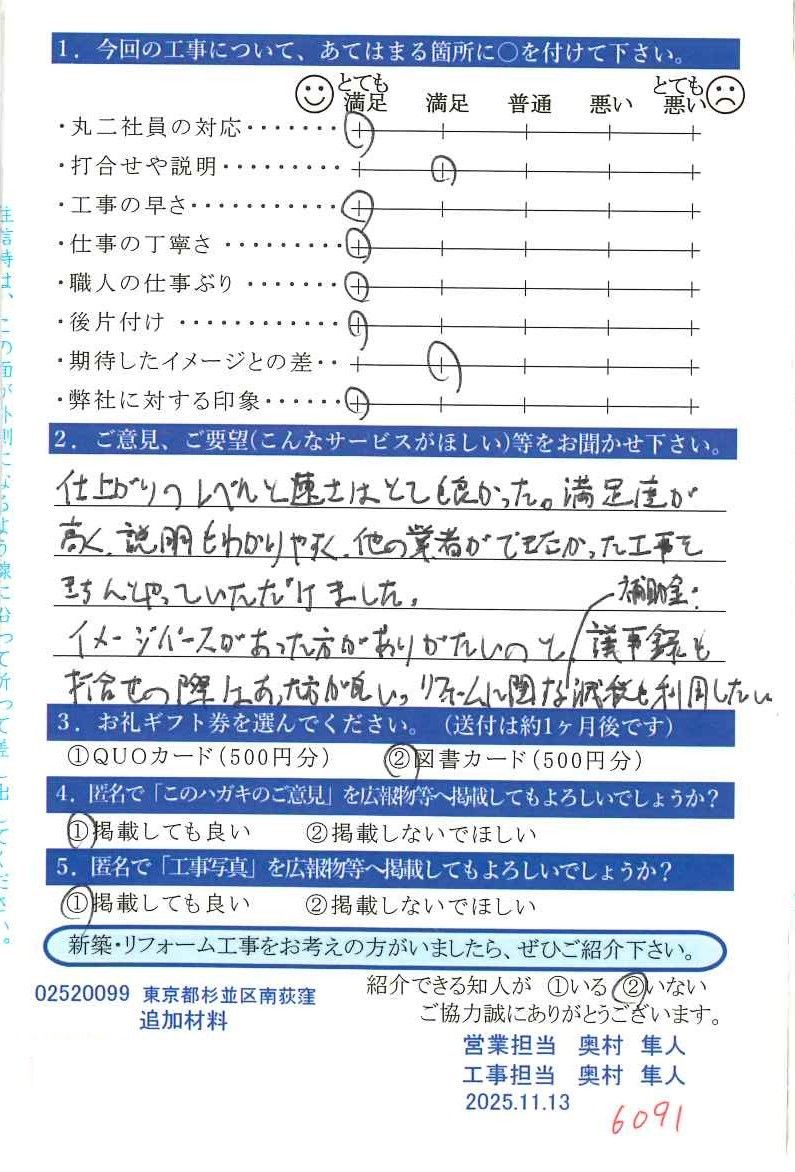 1. 今回の工事について、あてはまる箇所に○を付けて下さい。
とても満足 満足 普通 悪い とても悪い
・丸二社員の対応・・・・・・・
・打合せや説明・・・・・・・・・
・工事の早さ・・・・・・・・・・・
・仕事の丁寧さ ・・・・・・・・・
・職人の仕事ぶり ・・・・・・・
・後片付け ・・・・・・・・・・・・
・期待したイメージとの差・・
・弊社に対する印象・・・・・・
2. ご意見、ご要望(こんなサービスがほしい)等をお聞かせ下さい。
仕上がりのレベルと速さはとても良かった。満足度が
高く、説明もわかりやすく、他の業者ができなかった工事を
きちんとやっていただけました。
補助金・
イメージパースがあった方がありがたいのと、議事録も
打合せの際はあった方が良い。リフォームに関な減税も利用したい
3. お礼ギフト券を選んでください。（送付は約1ヶ月後です）
①QUOカード(500円分) ②図書カード(500円分)
4. 匿名で「このハガキのご意見」を広報物等へ掲載してもよろしいでしょうか?
①掲載しても良い ②掲載しないでほしい
5. 匿名で「工事写真」を広報物等へ掲載してもよろしいでしょうか?
①掲載しても良い ②掲載しないでほしい
新築・リフォーム工事をお考えの方がいましたら、ぜひご紹介下さい。
紹介できる知人が ①いる ②いない
ご協力誠にありがとうございます。
02520099 東京都杉並区南荻窪
追加材料
営業担当 奥村 隼人
工事担当 奥村 隼人
2025.11.13
6091